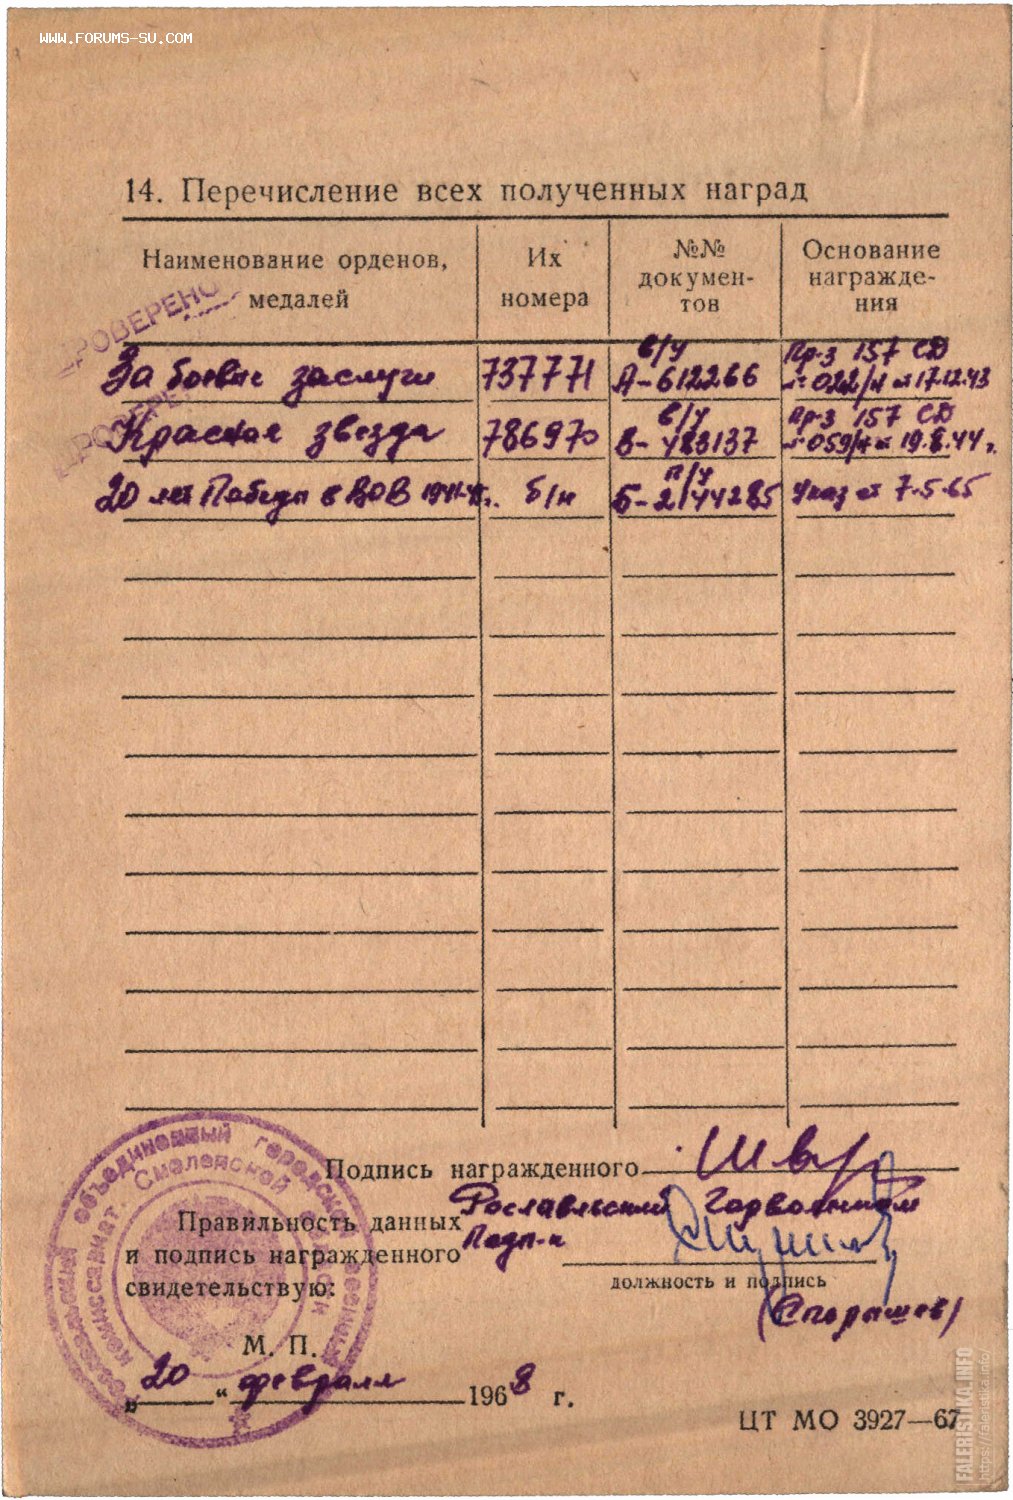 WWW.FORUMS-SU.COM
14. Перечисление всех полученных наград
Наименование орденов, медалей
Их номера
№№ документов
Основание награждения
ПРОВЕРЕНО
ПРОВЕРЕНО
За боевые заслуги 737771 в/у А-612266 Пр-з 157 СД № 022/н от 17.12.43
Красная звезда 786970 в/у В-483137 Пр-з 157 СД № 059/н от 19.8.44 г.
20 лет Победы в ВОВ 1941-45 г. б/н п/у Б-2144285 Указ от 7.5.65
Подпись награжденного
Рославльский Горвоенком
Правильность данных
и подпись награжденного
свидетельствую:
Подп-к
должность и подпись
(Спорышев)
М. П.
„ 20 “ февраля 1968 г.
ЦТ МО 3927—67
объединенный городской военный
комиссариат Смоленской
FALERISTIKA.INFO
https://faleristika.info/